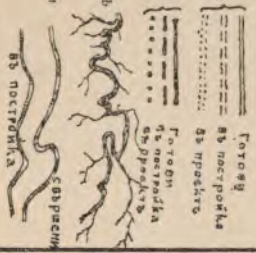 Готову
въ постройкѣ
въ проектъ
Готови
въ постройка
въ проектъ
свършени
въ постройка